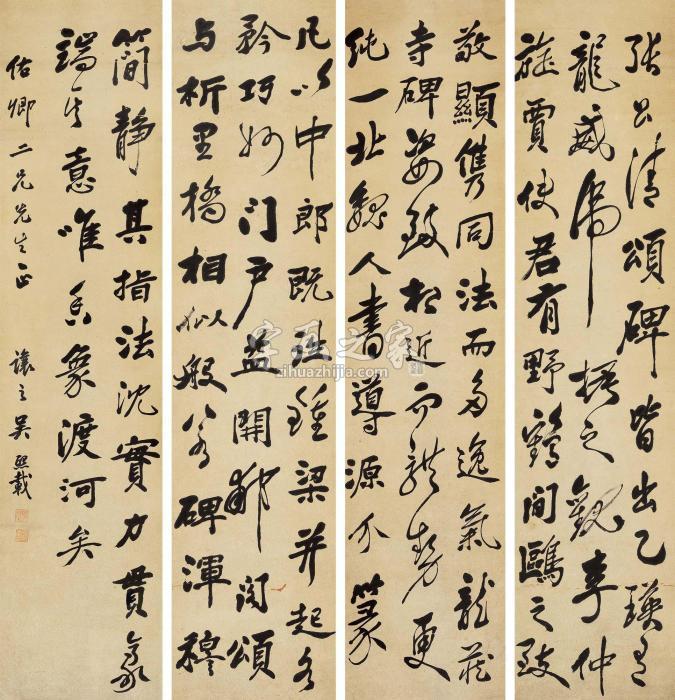 張公清頌碑皆出乙瑛有
龍威虎振之觀李仲
旋賈使君有野鶴間鷗之致
敬顯儁同法而多逸氣龍藏
寺碑姿致相近而體勢更
純一北魏人書導源分篆
凡以中郎既往鍾梁并起各
矜巧妙門户益開郙閣頌
与析里橋相似般若碑渾穆
簡靜其指法沈實力貫豪
端其意唯香象渡河矣
佑卿二兄先生正 讓之吳熙載
字画之家
zihuazhijia.com